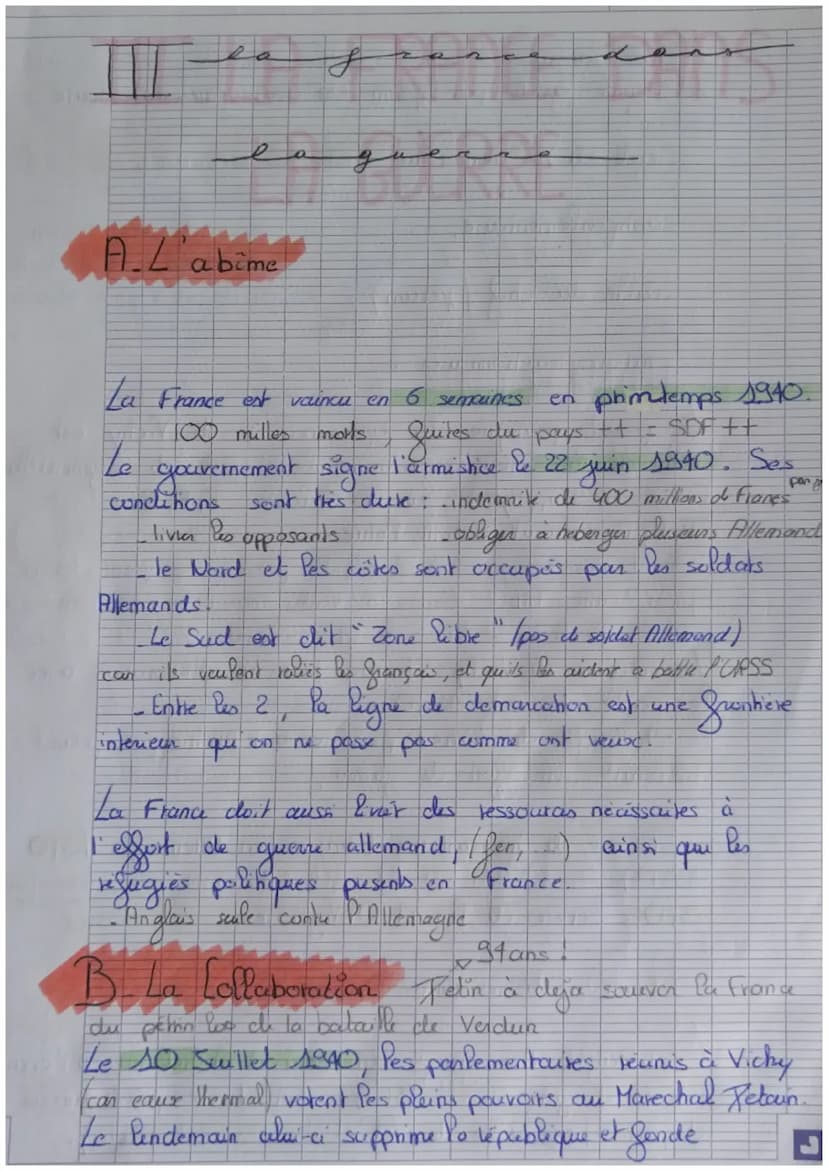 III la france dans
la guerre
A. L'abîme
La France est vaincu en 6 semaines en printemps 1940.
100 milles morts, fuites du pays ++ = SDF ++
Le gouvernement signe l'armistice le 22 juin 1940. Ses
conditions sont très dure : - indemnité de 400 millions de Francs par
- livrer les opposants - obliger à heberger plusieurs Allemand
- le Nord et les côtes sont occupés par les soldats
Allemands.
- Le Sud est dit "Zone libre" (pas de soldat Allemand)
car ils veulent ralies les français, et qu'ils les aident a battre l'URSS
- Entre les 2, la ligne de demarcation est une frontière
interieur qu'on ne passe pas comme ont veux.
La France doit aussi livrer des ressources nécissaires à
l'effort de guerre allemand, (fer, ...) ainsi que les
réfugiés politiques présents en France.
- Anglais seule contre l'Allemagne
94 ans !
B - La Collaboration Petin à deja sauver la France
du pétrin lors de la bataille de Verdun
Le 10 Juillet 1940, les parlementaires réunis à Vichy
(car eaux thermal) votent les pleins pouvoirs au Marechal Petain.
Le lendemain celui-ci supprime la république et fonde